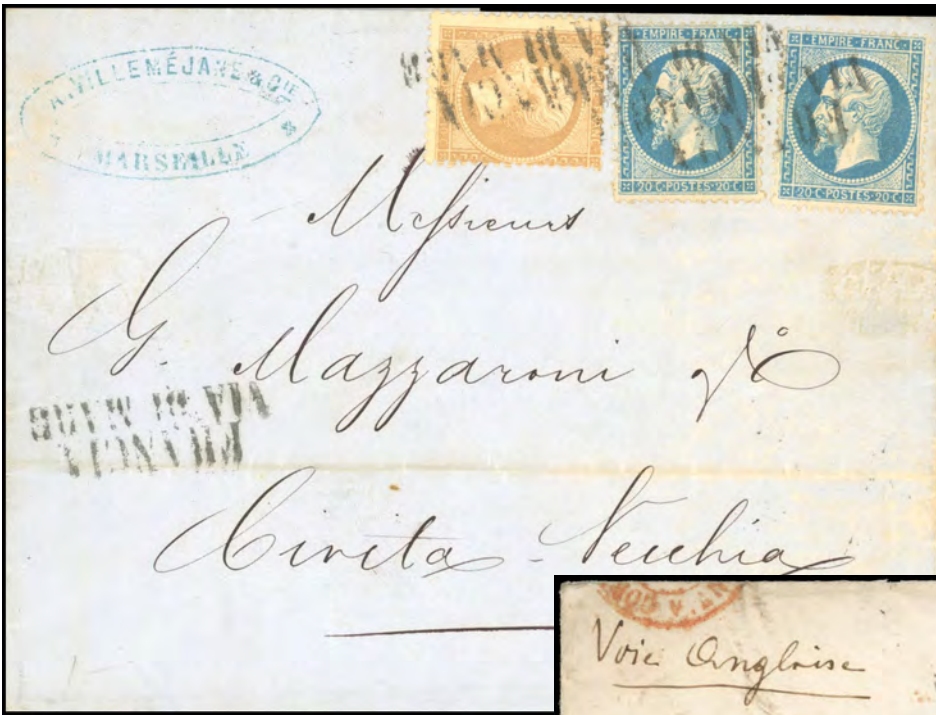 A. VILLEMÉJANE & CIE
MARSEILLE
EMPIRE FRANC
20 C POSTES 20 C
EMPIRE FRANC
20 C POSTES 20 C
Messieurs
G. Mazzaroni & Co
VIA DI MARE
FRANCIA
Civita-Vecchia
Voie Anglaise